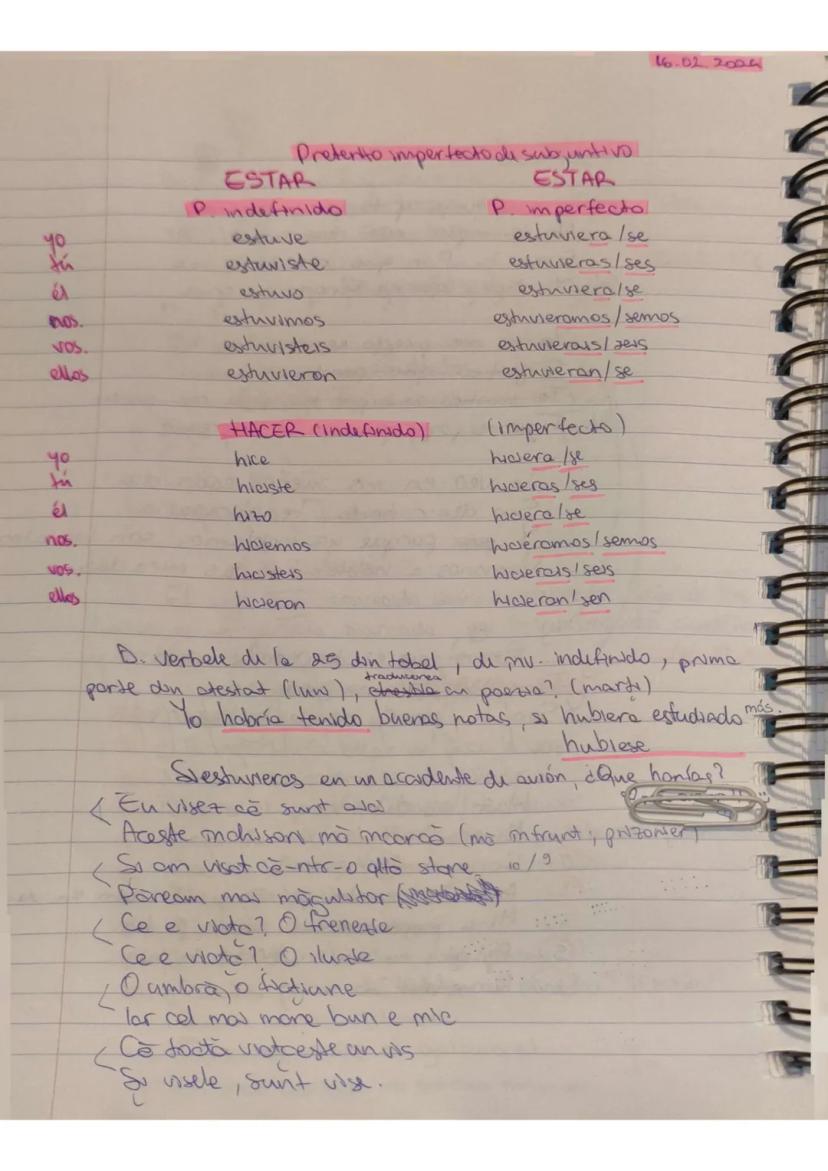 16.02.2024
Preterito imperfecto de subjuntivo
ESTAR ESTAR
P. indefinido P. imperfecto
yo estuve estuviera/se
tú estuviste estuvieras/ses
él estuvo estuviera/se
nos. estuvimos estuvieramos/semos
vos. estuvisteis estuvierais/seis
ellos estuvieron estuvieran/se
HACER (indefinido) (imperfecto)
yo hice hiciera/se
tú hiciste hicieras/ses
él hizo hiciera/se
nos. hiciemos hiciéramos/semos
vos. hicisteis hicierais/seis
ellos hicieron hicieran/sen
D. verbele de la 25 din tabel, de înv. indefinido, prima
traducerea
parte din atestat (luni), cu poezia? (marți)
Yo habría tenido buenas notas, si hubiera estudiado más.
hubiese
Si estuvieras en un accidente de avión, ¿Que harías?
Eu visez că sunt aici
Aceste închisori mă încarcă (mă înfrunt; prizonier)
Si am visat că-ntr-o altă stare 10/9
Păream mai măgulitor
Ce e viața? O frenezie
Ce e viață? O iluzie
O umbră, o ficțiune
Iar cel mai mare bun e mic
Că toată viața este un vis
Și visele, sunt vise.